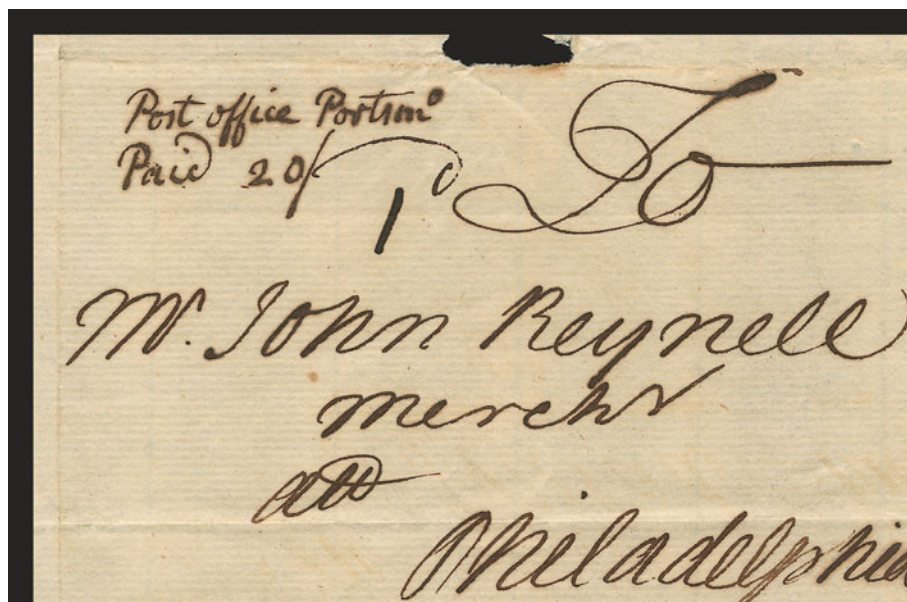 Post office Portsmo
Paid 20/
1d To
Mr. John Reynell
mercht
att
Philadelphia